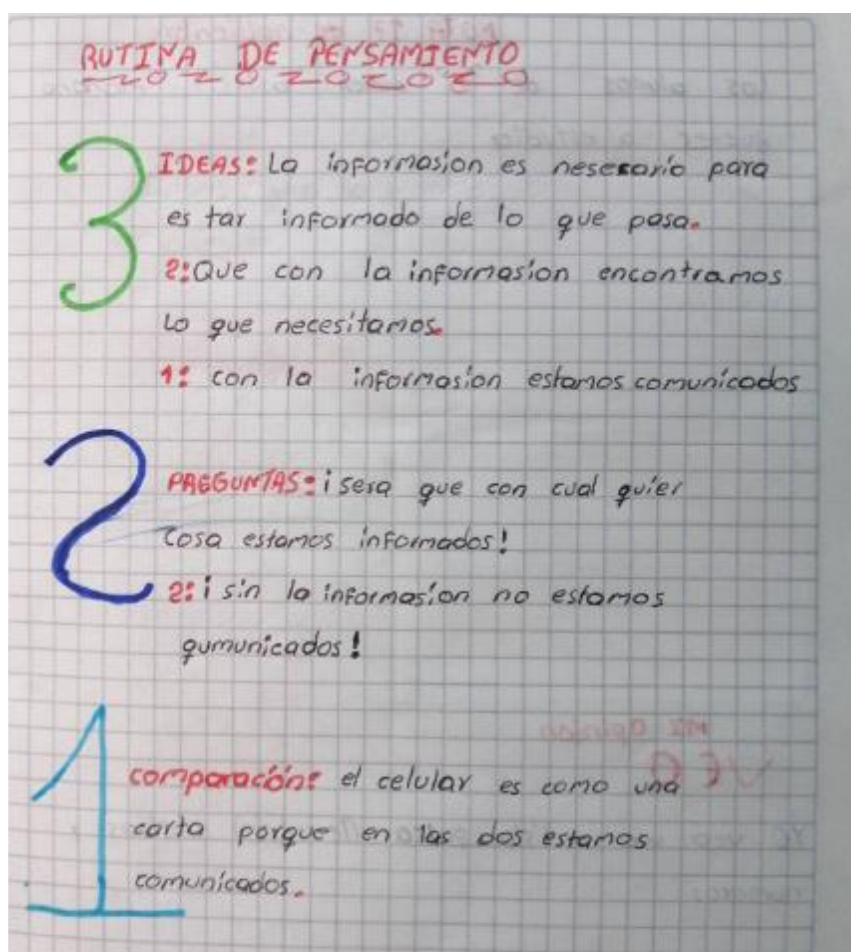 RUTINA DE PENSAMIENTO
3 IDEAS: La informasion es nesesario para
es tar informado de lo que pasa.
2: Que con la informasion encontramos
lo que necesitamos.
1: con la informasion estamos comunicados
2 PREGUNTAS: ¡ sera que con cual quier
cosa estamos informados!
2: ¡ sin la informasion no estamos
qumunicados!
1 comparación: el celular es como una
carta porque en las dos estamos
comunicados.